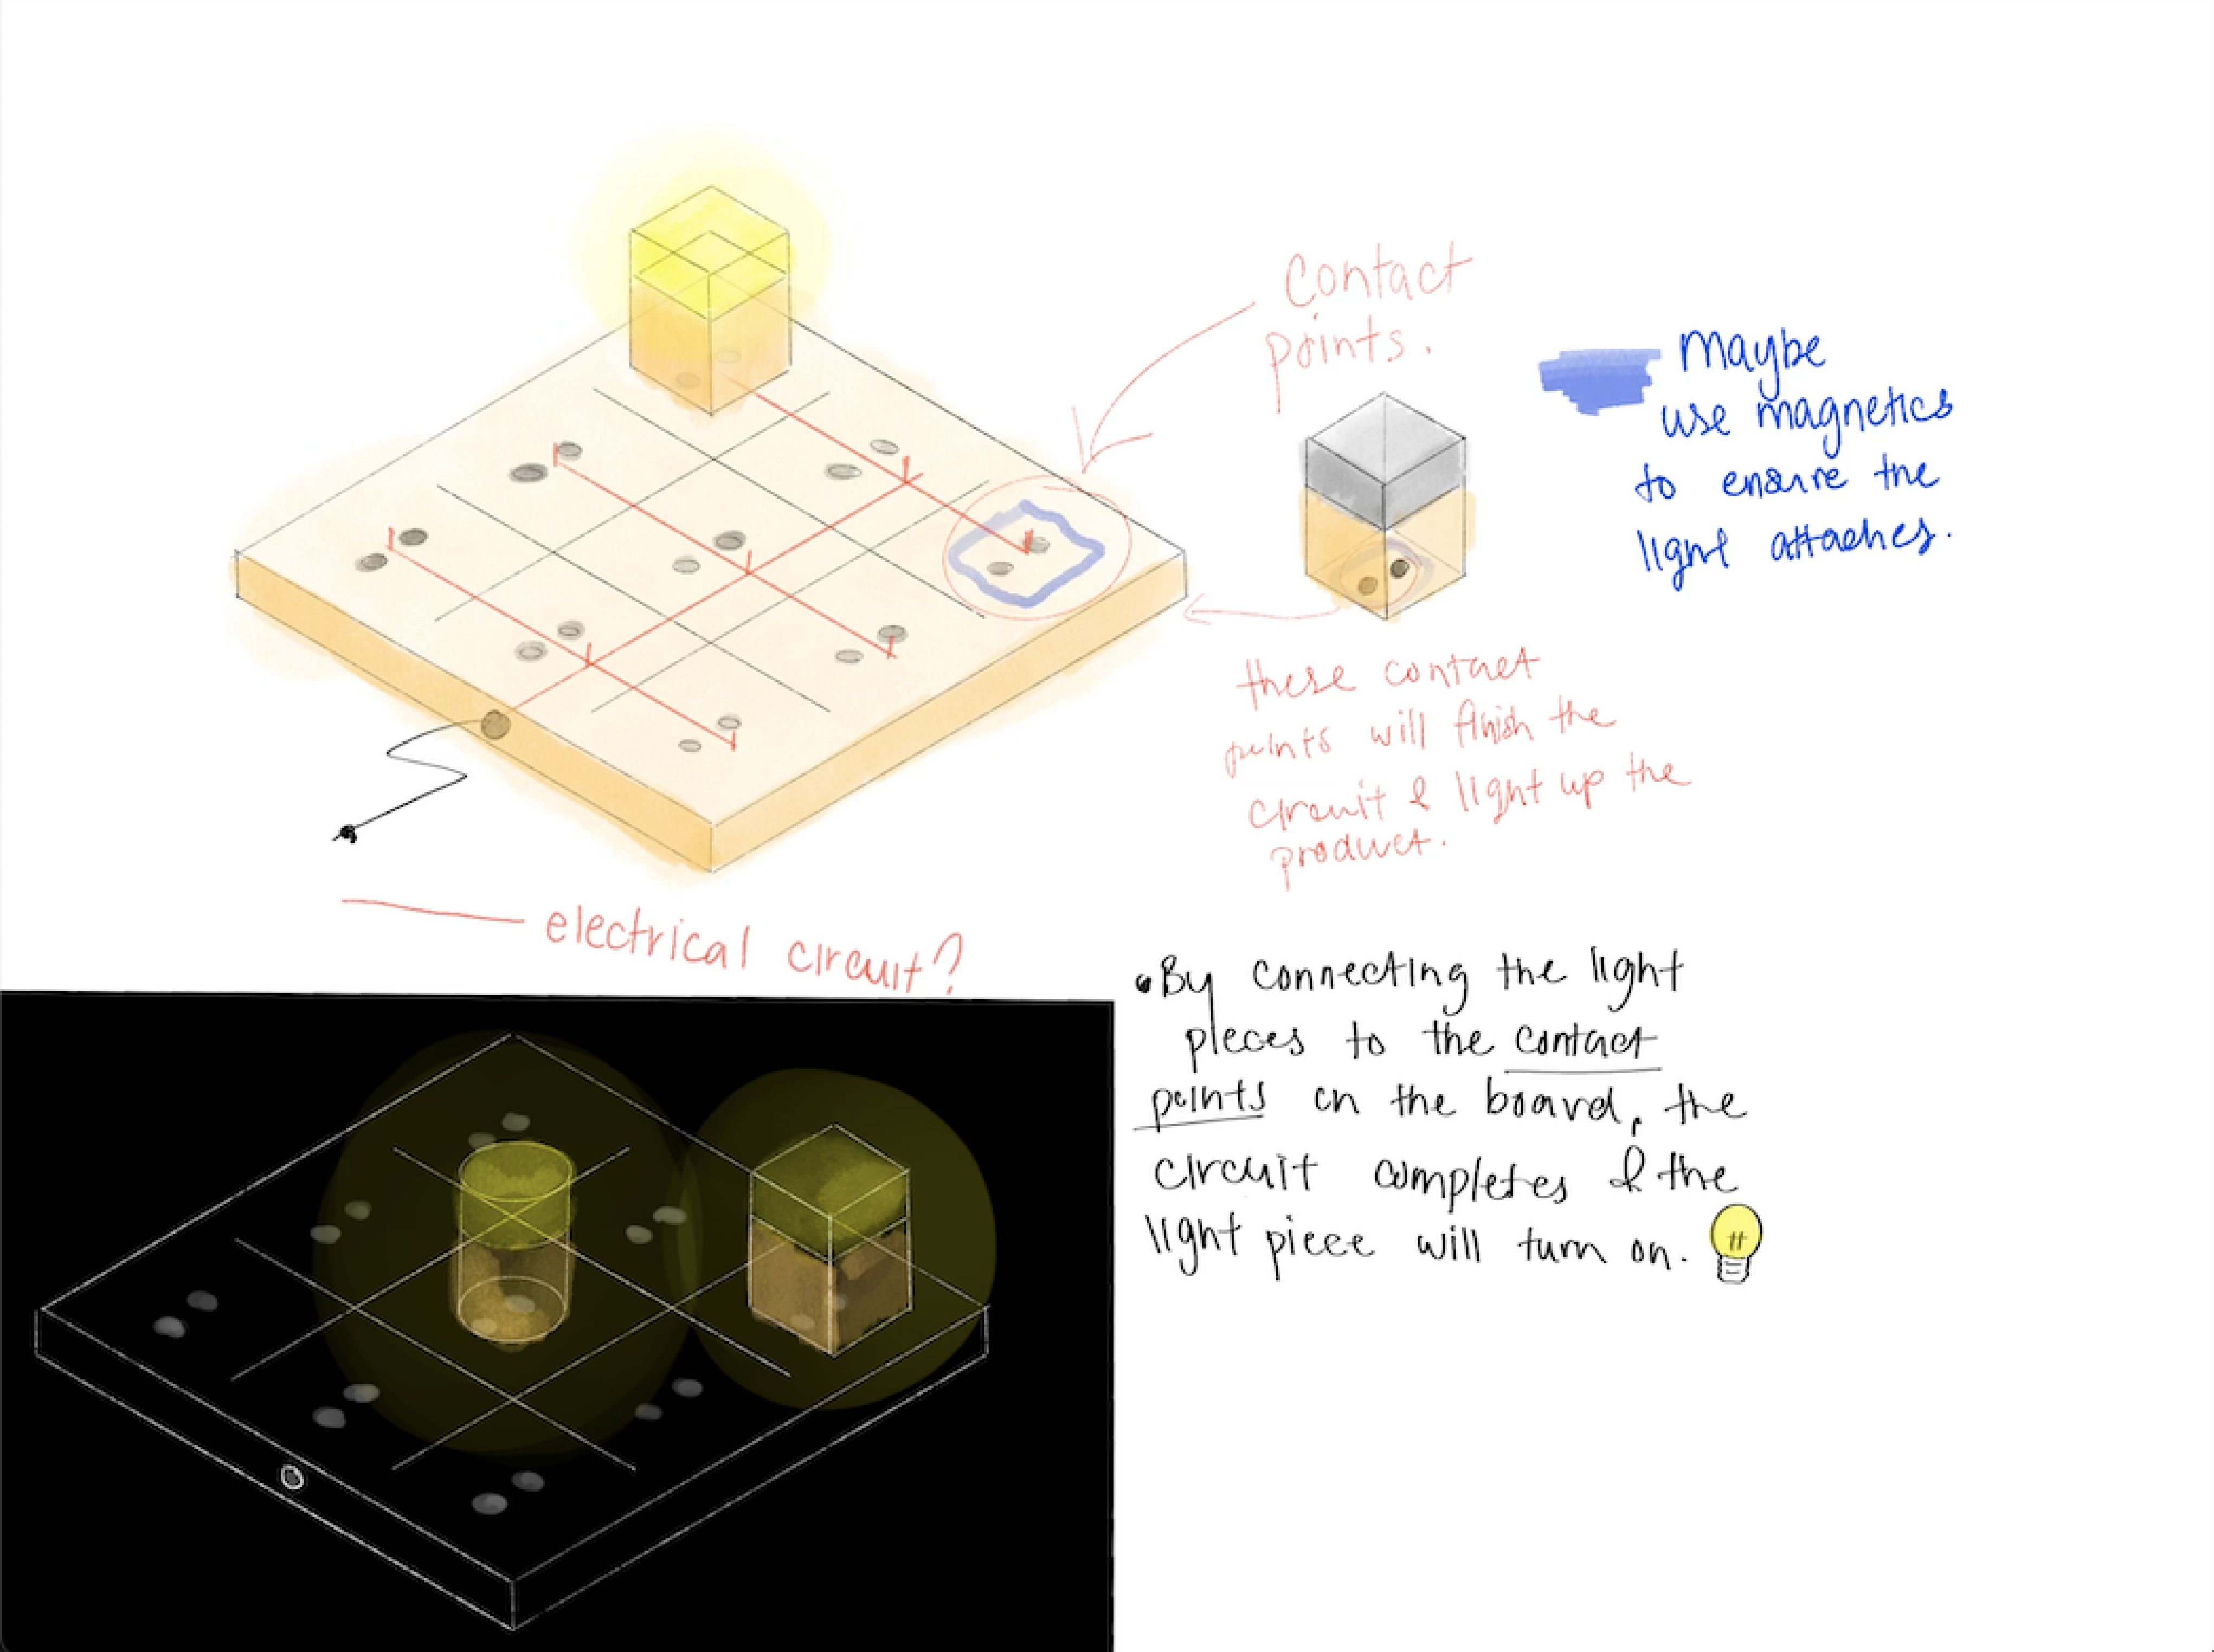 Contact
points.
Maybe
use magnetics
to ensure the
light attaches.
these contact
points will finish the
circuit & light up the
product.
electrical circuit?
• By connecting the light
pieces to the contact
points on the board, the
circuit completes & the
light piece will turn on.